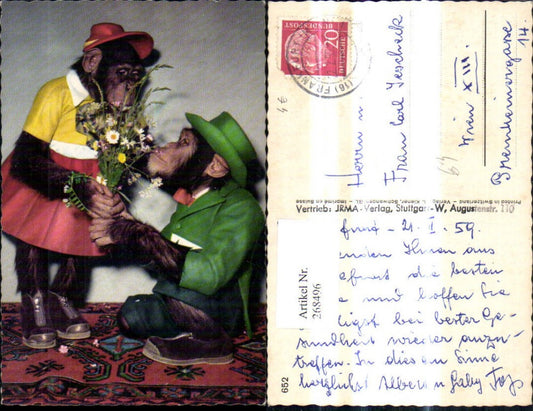 DEUTSCHE BUNDESPOST
20
4€
Herrn u.
Frau Carl Jeschick
Wien XIII.
Brandmeiergasse
14.
64
Vertrieb: JRMA-Verlag, Stuttgart-W, Augustenstr. 110
Printed in Switzerland - Verlag
Imprimé en Suisse
Artikel Nr.
268496
furt - 21. I. 59.
enden Ihnen aus
furt die besten
e und hoffen Sie
ligst bei bester Ge-
sundheit wieder anzu-
treffen. In diesem Sinne
herzlichst Alben u Gaby
652